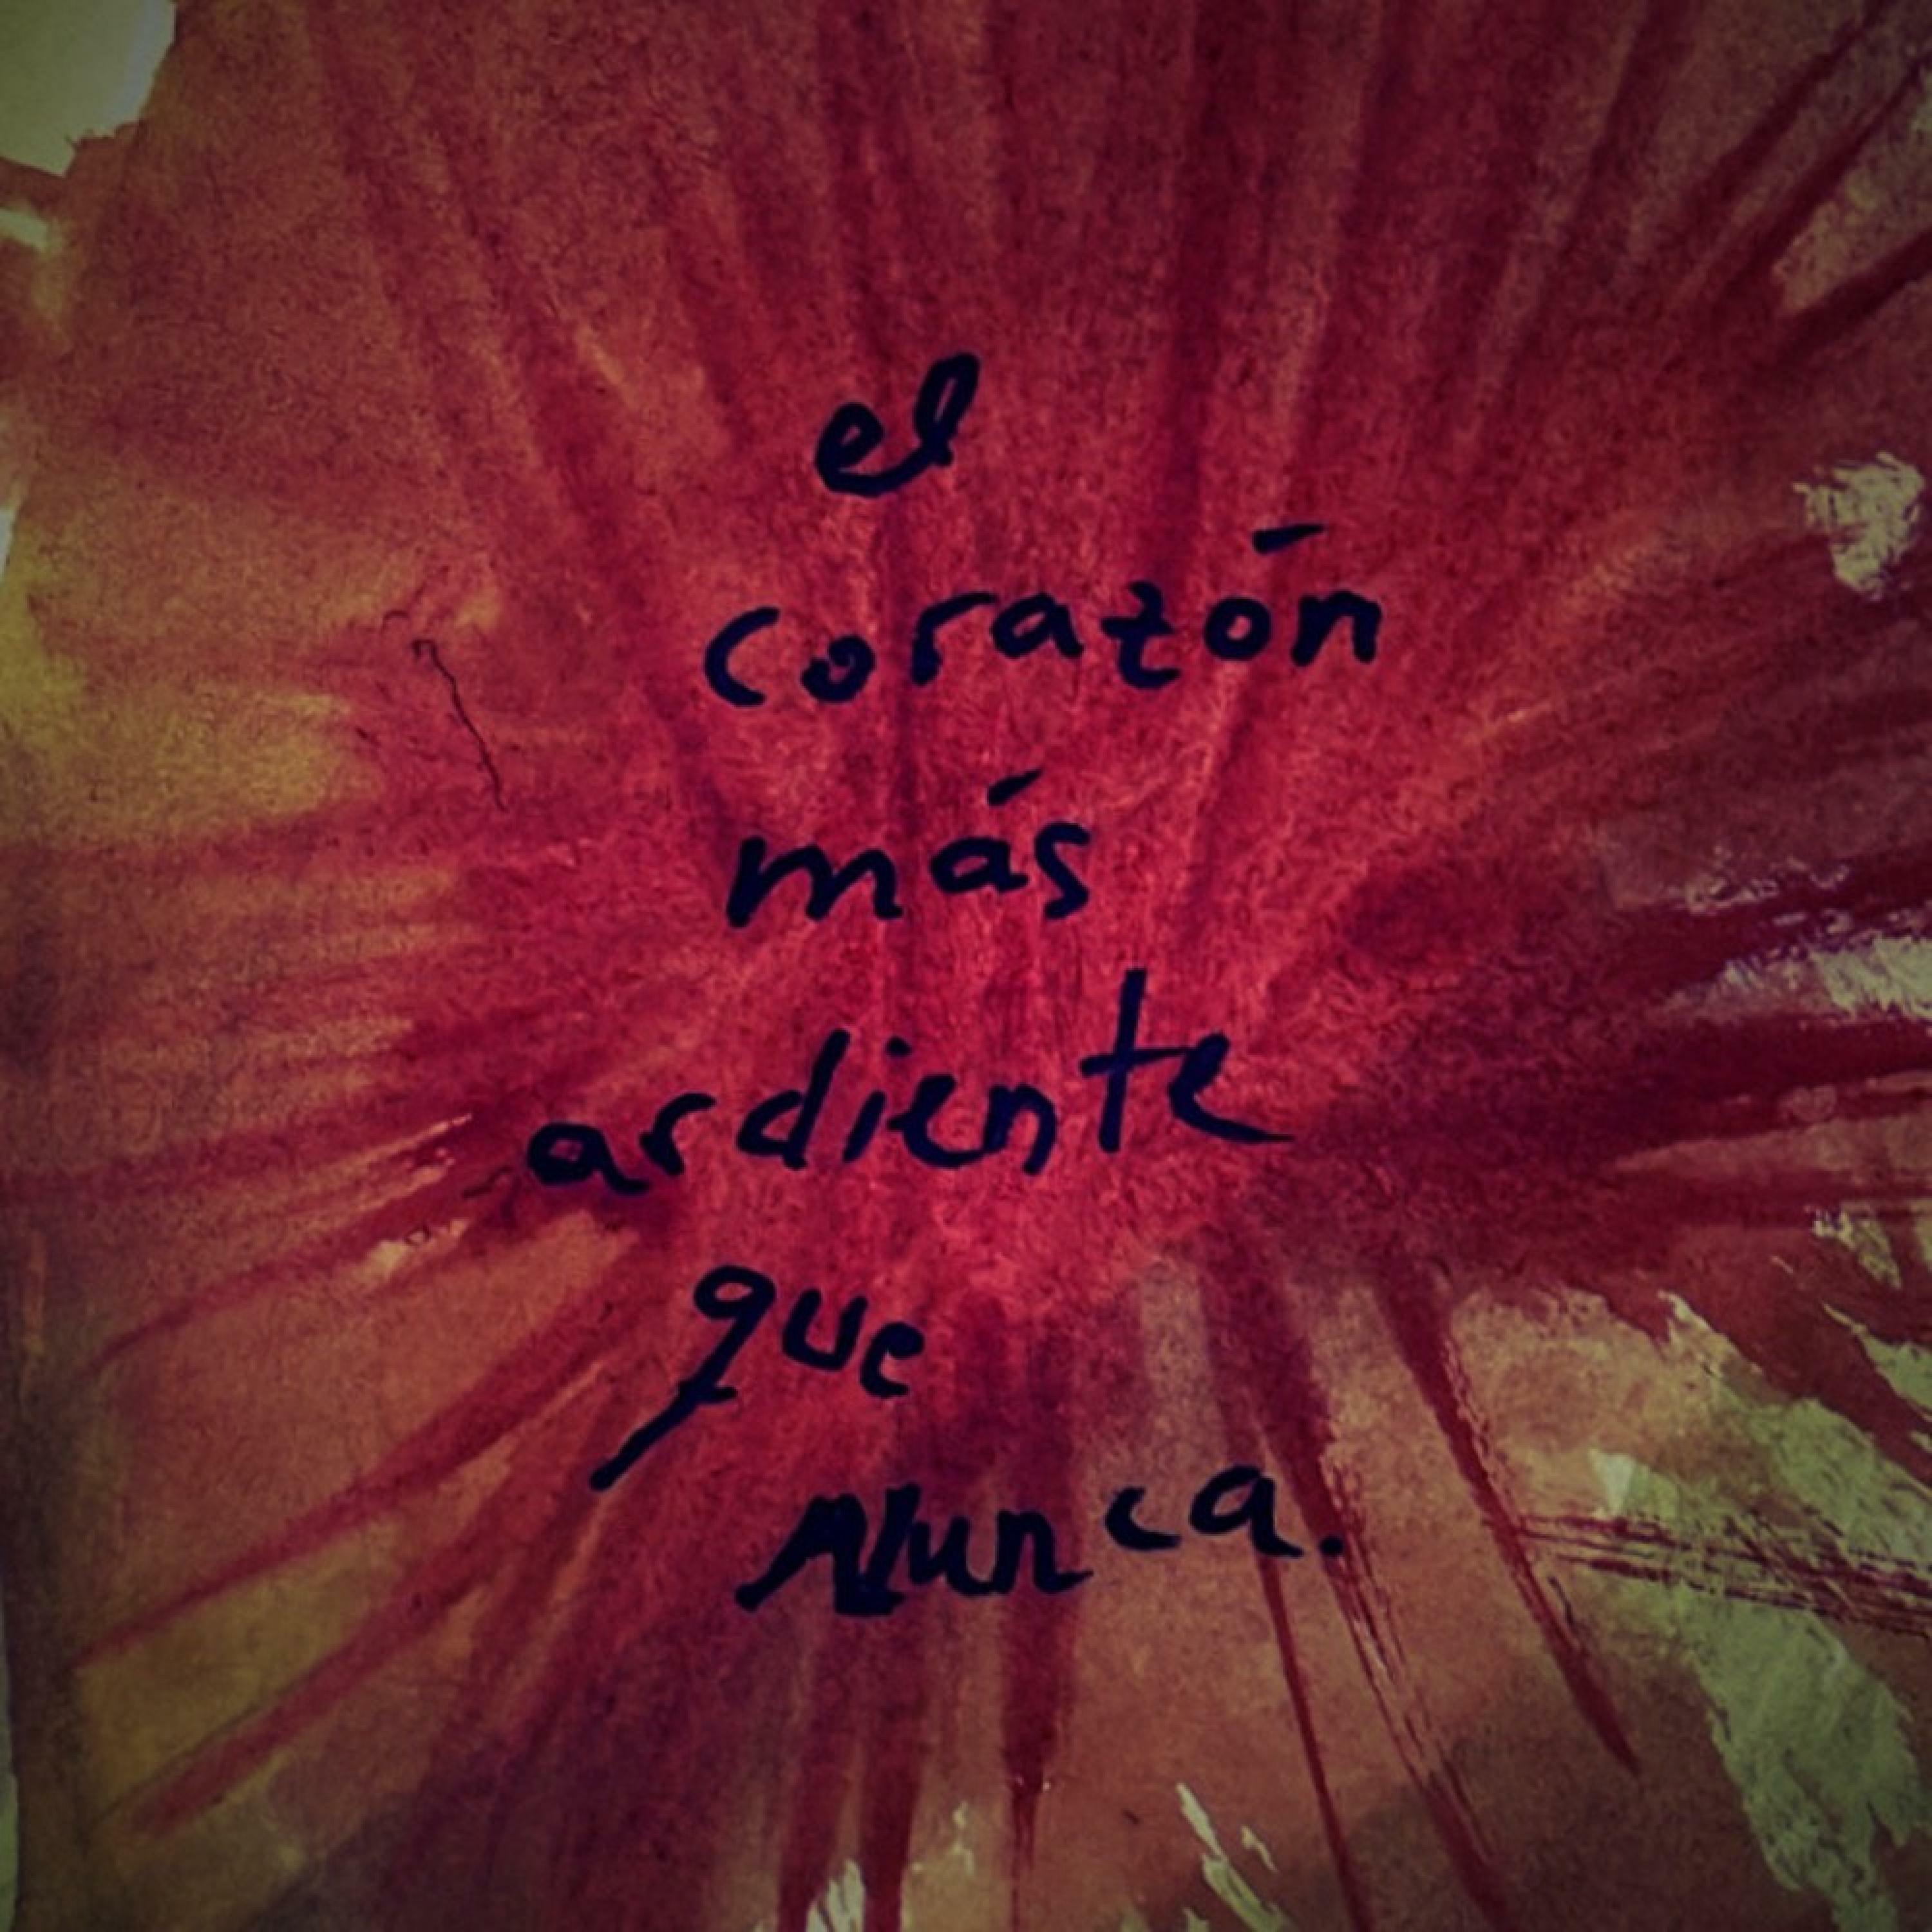 el
corazón
más
ardiente
que
Nunca.